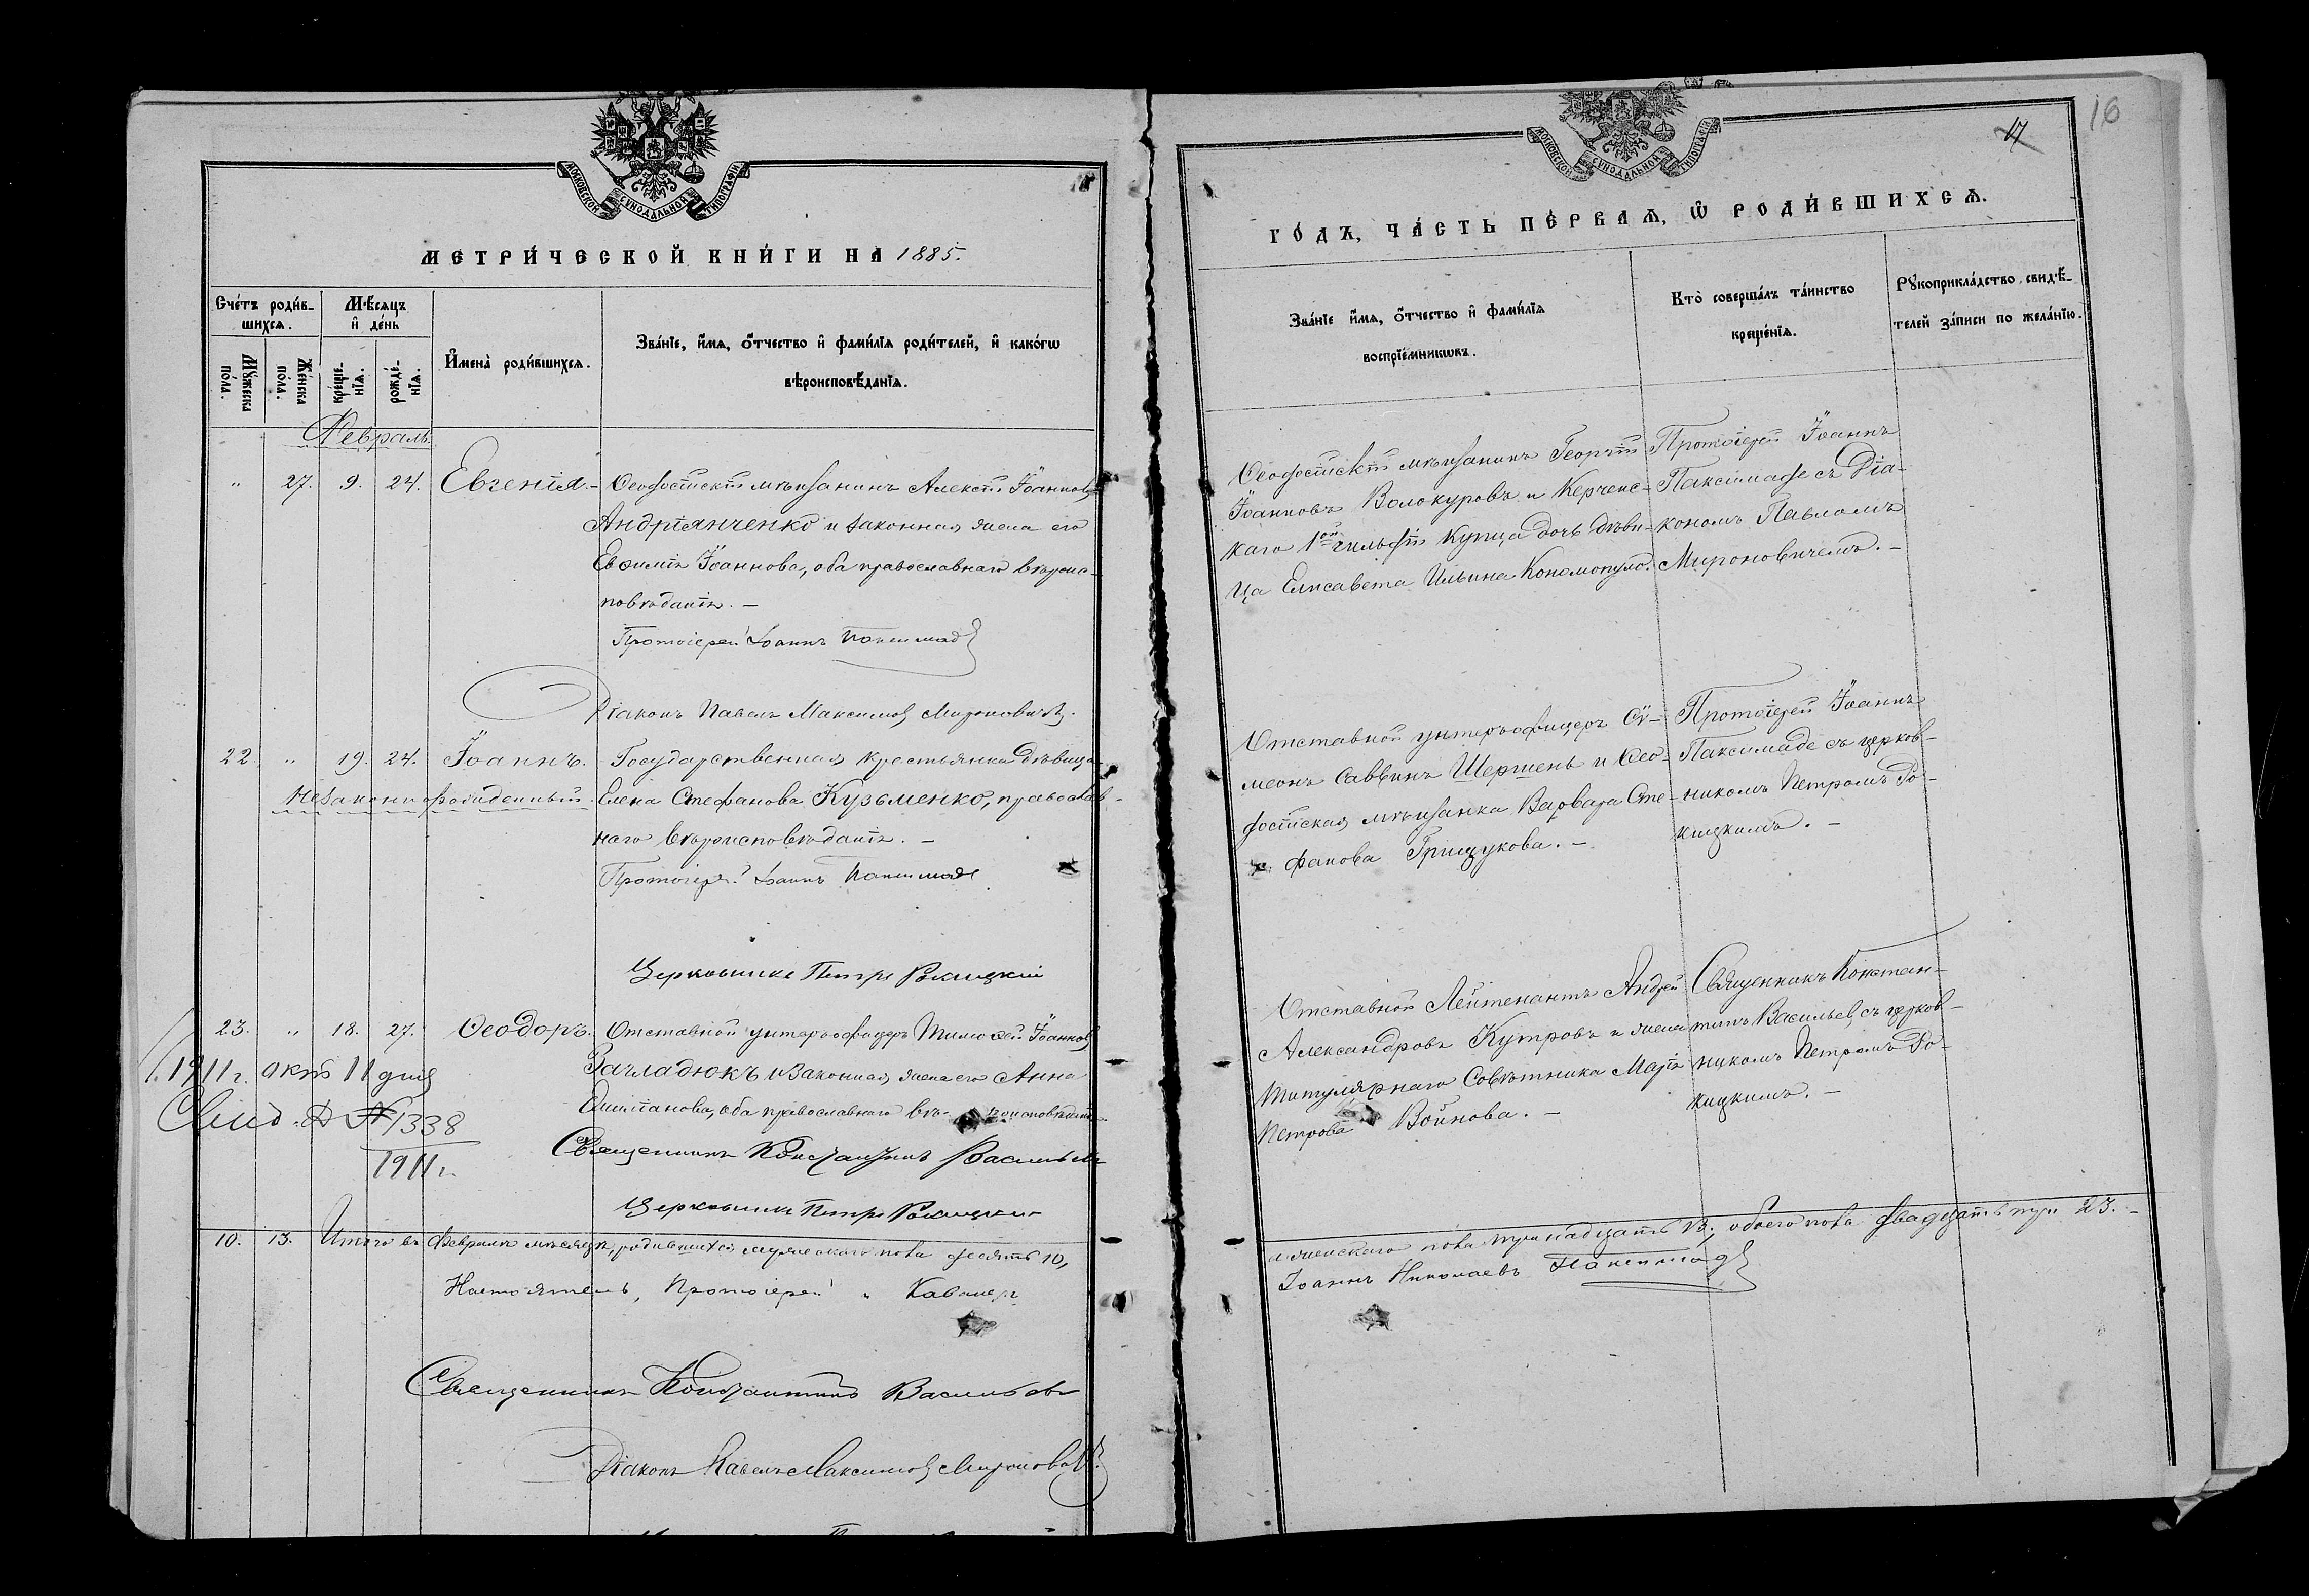 МОСКОВСКОЙ СѴНОДАЛЬНОЙ ТИПОГРАФІИ
МЕТРИ́ЧЕСКОЙ КНИ́ГИ НА 1885.
Сче́тъ роди́в-
шихсѧ.
Мѣ́сяцъ
и҆ де́нь
Мꙋ́жеска
по́ла.
Же́нска
по́ла.
рожде́-
нїѧ.
креще́-
нїѧ.
И҆мена̀ роди́вшихсѧ.
Зва́нїе, и҆́мѧ, ѻ҆́тчество и҆ фами́лїѧ роди́телей, и҆ како́гѡ
вѣроисповѣ́данїѧ.
Февраль
" 27. 9. 24. Евгенія.
Ѳеодосійскій мѣщанинъ Алексѣй Іоанновъ
Андріянченко и законная жена его
Евѳимія Іоаннова, оба православнаго вѣроис-
повѣданія. —
Протоіерей Іоаннъ Паксимаде
Діаконъ Павелъ Максимовъ Мироновичъ.
22. " 19. 24. Іоаннъ.
Незаконнорожденный.
Государственная крестьянка дѣвица
Елена Стефанова Кузьменко, православ-
наго вѣроисповѣданія. —
Протоіерей Іоаннъ Паксимаде
Церковникъ Петръ Рокицкій
23. " 18. 27. Ѳеодоръ.
Отставной унтеръ-офицеръ Тимоѳей Іоанновъ
Рагладюкъ и законная жена его Анна
оба православнаго вѣроисповѣданія.
1911 г. окт 11 дня
Свид. № 1338
1911 г.
Священникъ Константинъ Васильевъ
Церковникъ Петръ Рокицкій
10. 13. Итого въ Февралѣ мѣсяцѣ родившихся мужескаго пола десять 10,
Настоятель, Протоіерей и Кавалеръ
Священникъ Константинъ Васильевъ
Діаконъ Павелъ Максимовъ Мироновичъ.
16
17
МОСКОВСКОЙ СѴНОДАЛЬНОЙ ТИПОГРАФІИ
ГО́ДЪ, ЧА́СТЬ ПЕ́РВАѦ, Ѽ РОДИ́ВШИХСѦ.
Зва́нїе и҆́мѧ, ѻ҆́тчество и҆ фами́лїѧ
воспрїе́мникѡвъ.
Кто̀ соверша́лъ та́инство
креще́нїѧ.
Рꙋкоприкла́дство свидѣ́-
телей за́писи по жела́нїю.
Ѳеодосійскій мѣщанинъ Георгій
Іоанновъ Волокуровъ и Керченс-
каго 1ой гильдіи купца дочь дѣви-
ца Елисавета Ильина Кономопуло.
Протоіерей Іоаннъ
Паксимаде съ Діа-
кономъ Павломъ
Мироновичемъ. —
Отставной унтеръ-офицеръ Сѵ-
меонъ Саввинъ Шершень и Ѳео-
досійская мѣщанка Варвара Сте-
фанова Грищукова. —
Протоіерей Іоаннъ
Паксимаде съ церков-
никомъ Петромъ Ро-
кицкимъ. —
Отставной Лейтенантъ Андрей
Александровъ Кутровъ и жена
Титулярнаго Совѣтника Марія
Петрова Войнова. —
Священникъ Констан-
тинъ Васильевъ съ церков-
никомъ Петромъ Ро-
кицкимъ. —
женскаго пола тринадцать 13, обоего пола двадцать три 23. —
Іоаннъ Николаевъ Паксимаде